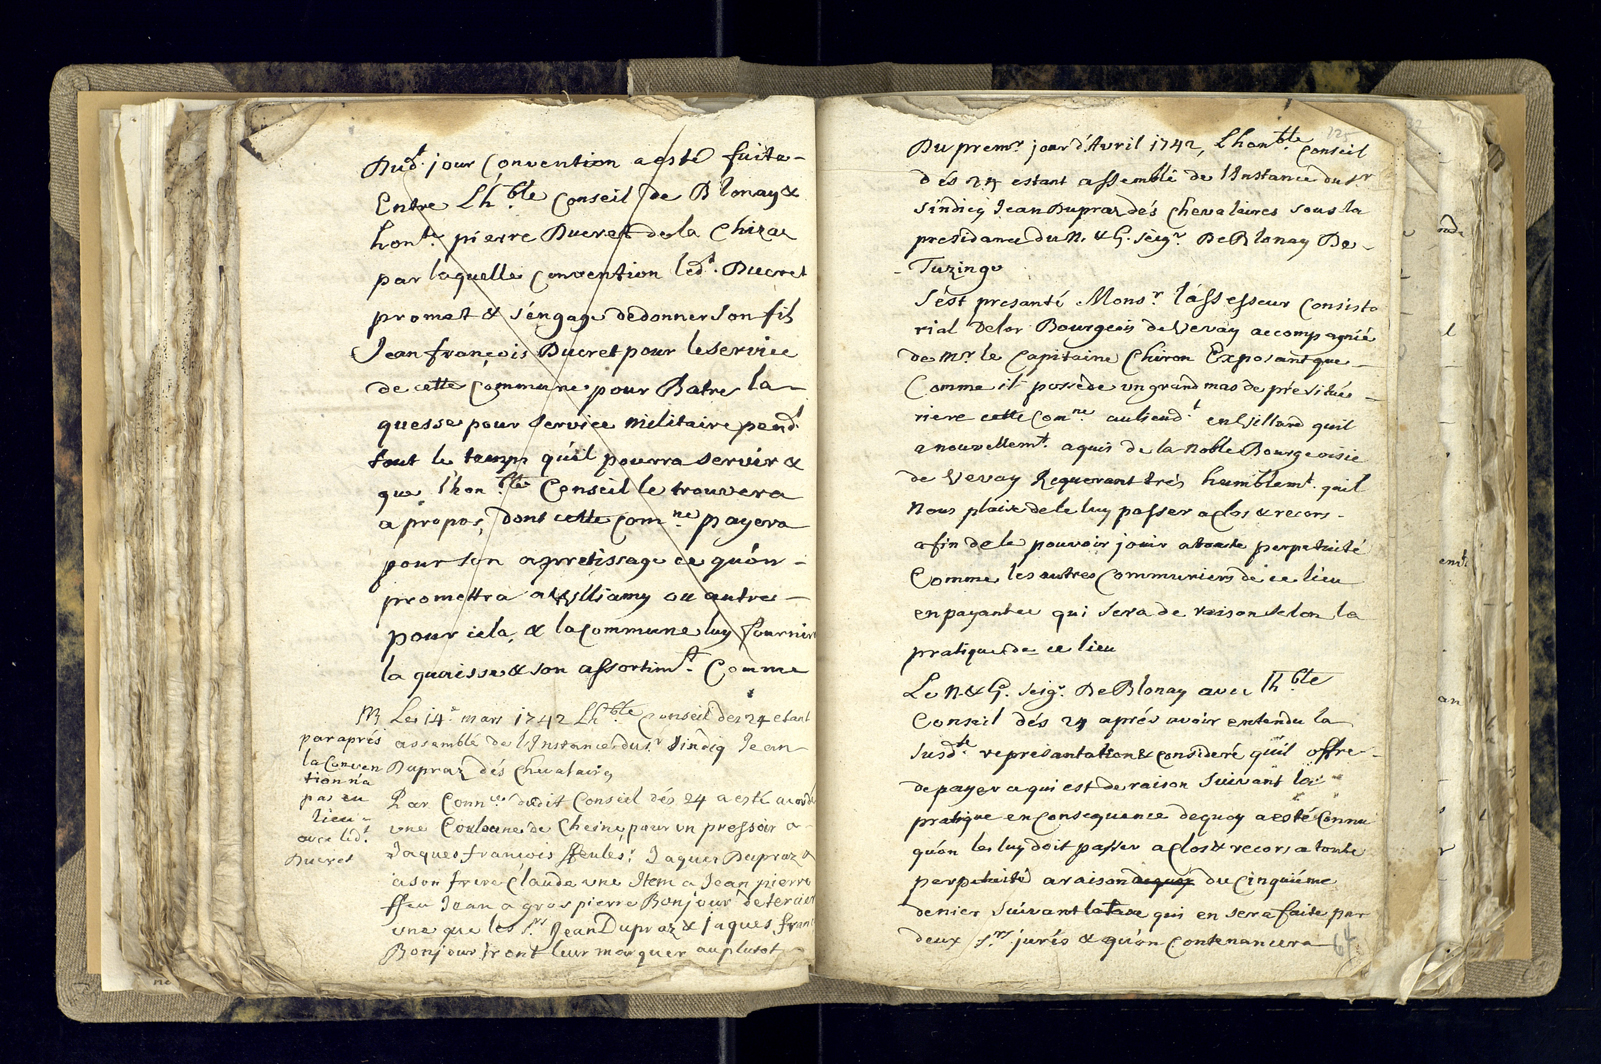 Dud.t jour Convention a esté faite
Entre Lh.ble Conseil de Blonay &
hon.te pierre Ducret de la Chizaz
par laquelle Convention led.t Ducret
promet & s'éngage de donner son fils
Jean françois Ducret pour le service
de cette Commune pour Batre la
quesse pour Service Militaire pend.t
tout le temps qu'il pourra servir &
que l'hon.ble Conseil le trouvera
a propos, dont cette Com.ne payera
pour son apretissage ce qu'on
promettra a Williamy ou autre
pour cela, & la Commune luy fournira
la quaisse & son assortim.t Comme
Le 14.e mars 1742 Lh.ble Conseil des 24 estant
assemblé de l'Instance du s.r Sindiq Jean
Dupraz dés Chevalaire
Par Conn.ce dudit Conseil dés 24 a esté acordé
une Coulonne de Chesne, pour un pressoir a
Jaques françois ffeu les.r Jaques Dupraz &
a son frere Claude une Item a Jean pierre
ffeu Jean a gros pierre Bonjour de
une que les S.rs Jean Dupraz & Jaques fran
Bonjour iront leur marquer au plutot
par aprés
la Conven
tion n'a
pas eu
lieu
avec léd.t
Ducret
125
Du prem.r jour d'Avril 1742, Lhon.ble Conseil
dés 24 estant assemblé de l'Instance du s.r
Sindicq Jean Dupraz dés Chevalaires sous la
presidance du N. & G. Seig.r De Blonay De
Tuzinge
S'est presanté Mons.r l'assesseur Consisto
rial Delor Bourgeois de Vevay accompagnié
de Mr le Capitaine Chiron Exposant que
Comme il possede un grand mas de pré situé
riere cette Com.ne au lieud.t en Villard qu'il
a nouvellem.t aquis de la Noble Bourgeoisie
de Vevay Requerant trés humblem.t qu'il
Nous plaise de le luy passer a clos & recors
afin de le pouvoir jouir a toute perpetuité
Comme les autres Communiers de ce lieu
en payant ce qui sera de raison selon la
pratique de ce lieu
Le N. & G. Seig.r De Blonay avec lh.ble
Conseil dés 24 aprés avoir entendu la
susd.te represantation & consideré qu'il offre
de payer a qui est de raison Suivant la
pratique en Consequence de quoy a esté Connu
qu'on les luy doit passer a clos & recors a toute
perpetuité a raison du Cinquiéme
denier Suivant la taxe qui en sera faite par
deux S.rs jurés & qu'on Contenancera
64